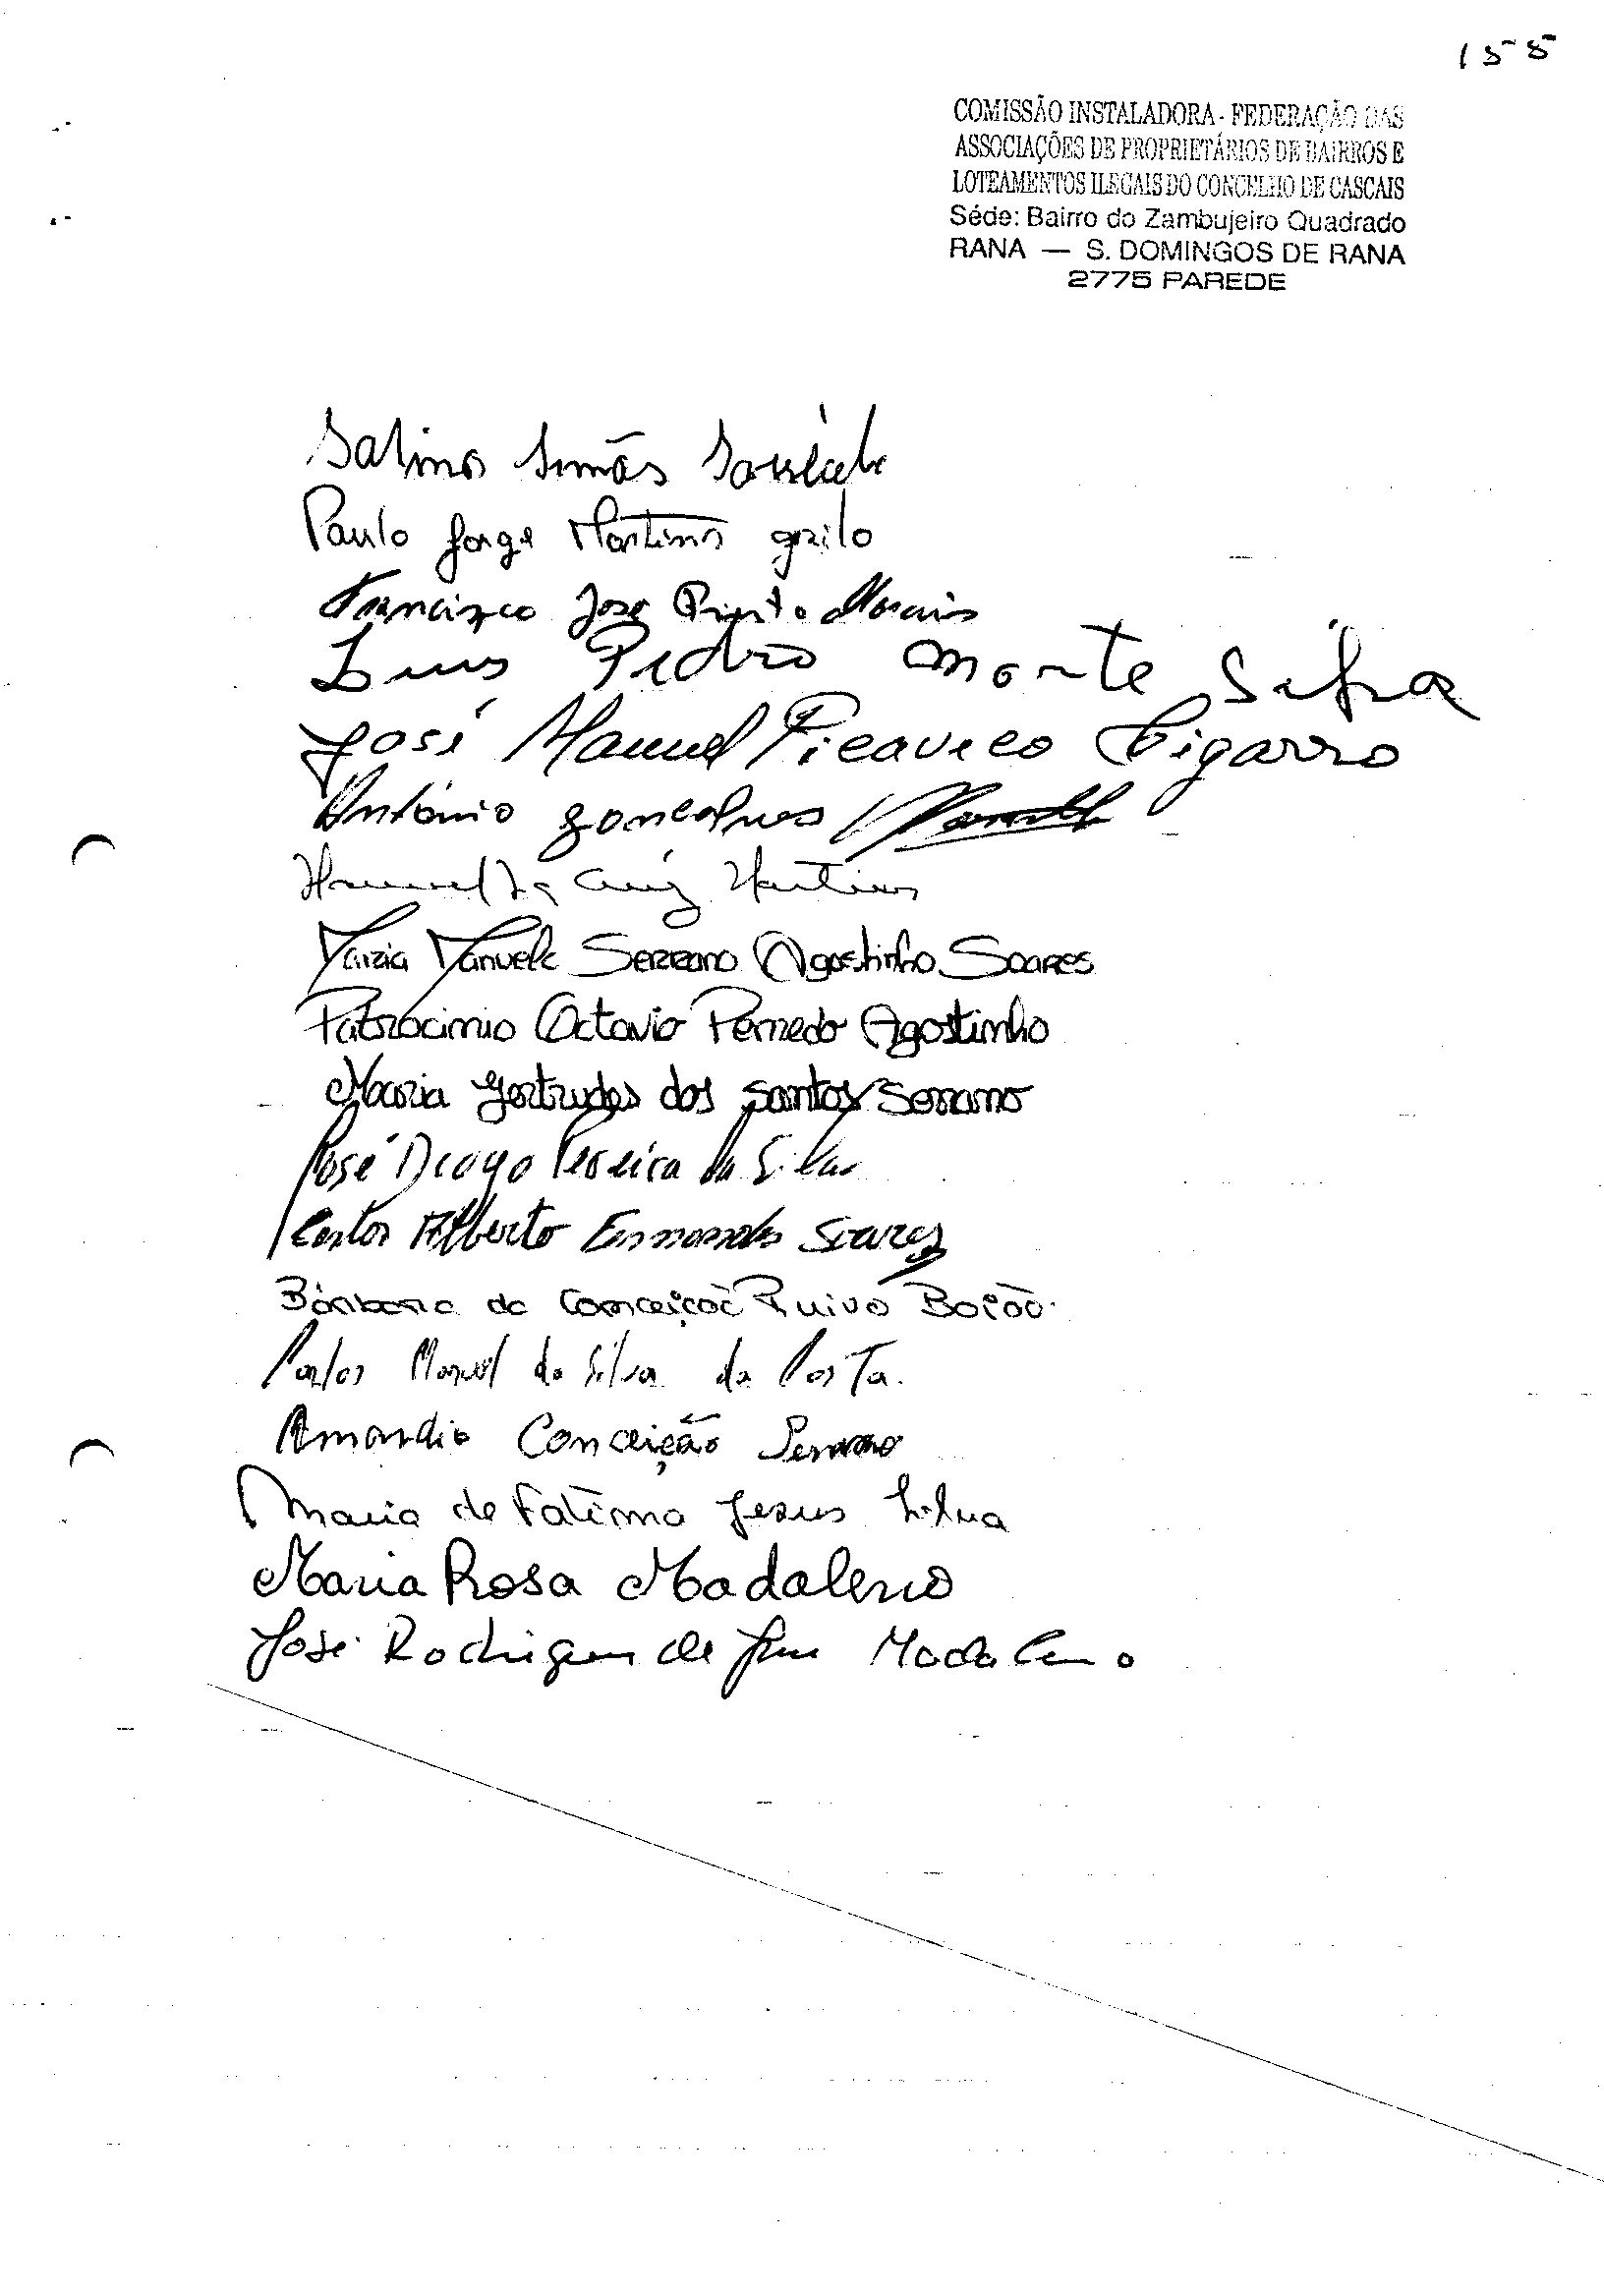 155
COMISSÃO INSTALADORA - FEDERAÇÃO DAS
ASSOCIAÇÕES DE PROPRIETÁRIOS DE BAIRROS E
LOTEAMENTOS ILEGAIS DO CONCELHO DE CASCAIS
Séde: Bairro do Zambujeiro Quadrado
RANA — S. DOMINGOS DE RANA
2775 PAREDE
Simão
Paulo Jorge Martins grilo
Francisco José Pinto Morais
Luis Pedro monte Silva
José Manuel Picaveco Cigarro
António gonçalves
Manuel Martins
Maria Manuela Serrano Agostinho Soares
Patrocinio Octavio Penedo Agostinho
Maria gertrudes dos santos Serrano
José Diogo Pereira da Silva
Carlos Alberto Fernandes Soares
Bárbara da Conceição Ruivo Boião
Carlos Manuel da Silva da Costa.
Amandio Conceição Serrano
Maria de Fatima Jesus Silva
Maria Rosa Madaleno
José Rodrigues de Madaleno